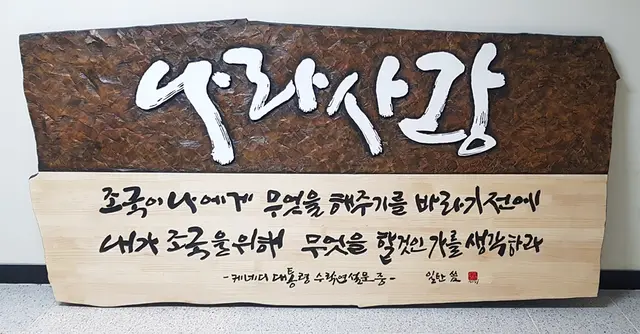 나라사랑
조국이 나에게 무엇을 해주기를 바라기전에
내가 조국을 위해 무엇을 할것인가를 생각하라
-케네디 대통령 수락연설문 중- 일탄 씀